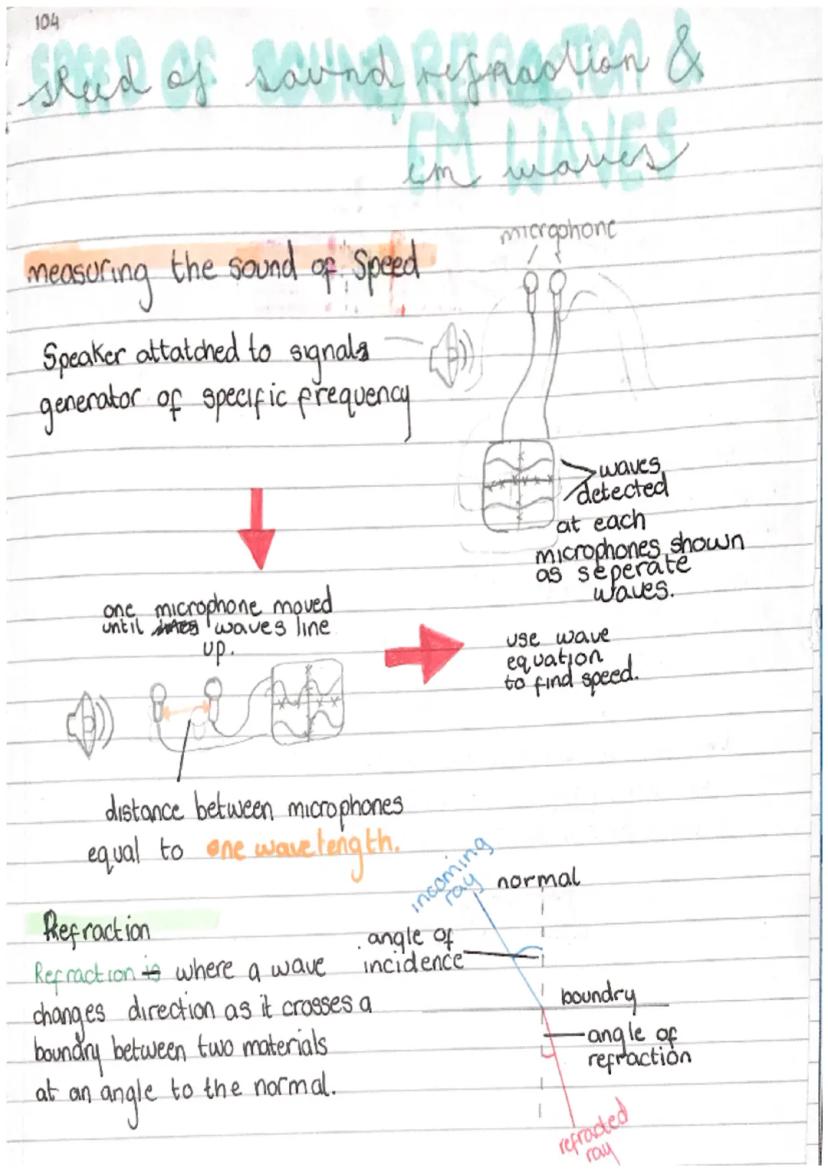 104
SPEED OF SOUND, REFRACTION &
speed of sound, refraction &
EM WAVES
em waves
microphone
measuring the sound of Speed
Speaker attatched to signals
generator of specific frequency
waves
detected
at each
microphones shown
as seperate
waves.
one microphone moved
until waves line
up.
use wave
equation
to find speed.
distance between microphones
equal to one wavelength.
incoming
ray
normal
Refraction
angle of
incidence
Refraction is where a wave
changes direction as it crosses a
boundry between two materials
at an angle to the normal.
boundry
angle of
refraction
refracted
ray